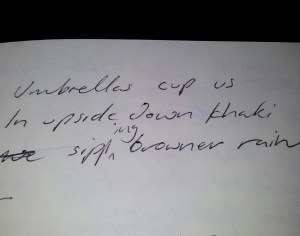 Umbrellas cup us
In upside down khaki
sipping browner rain